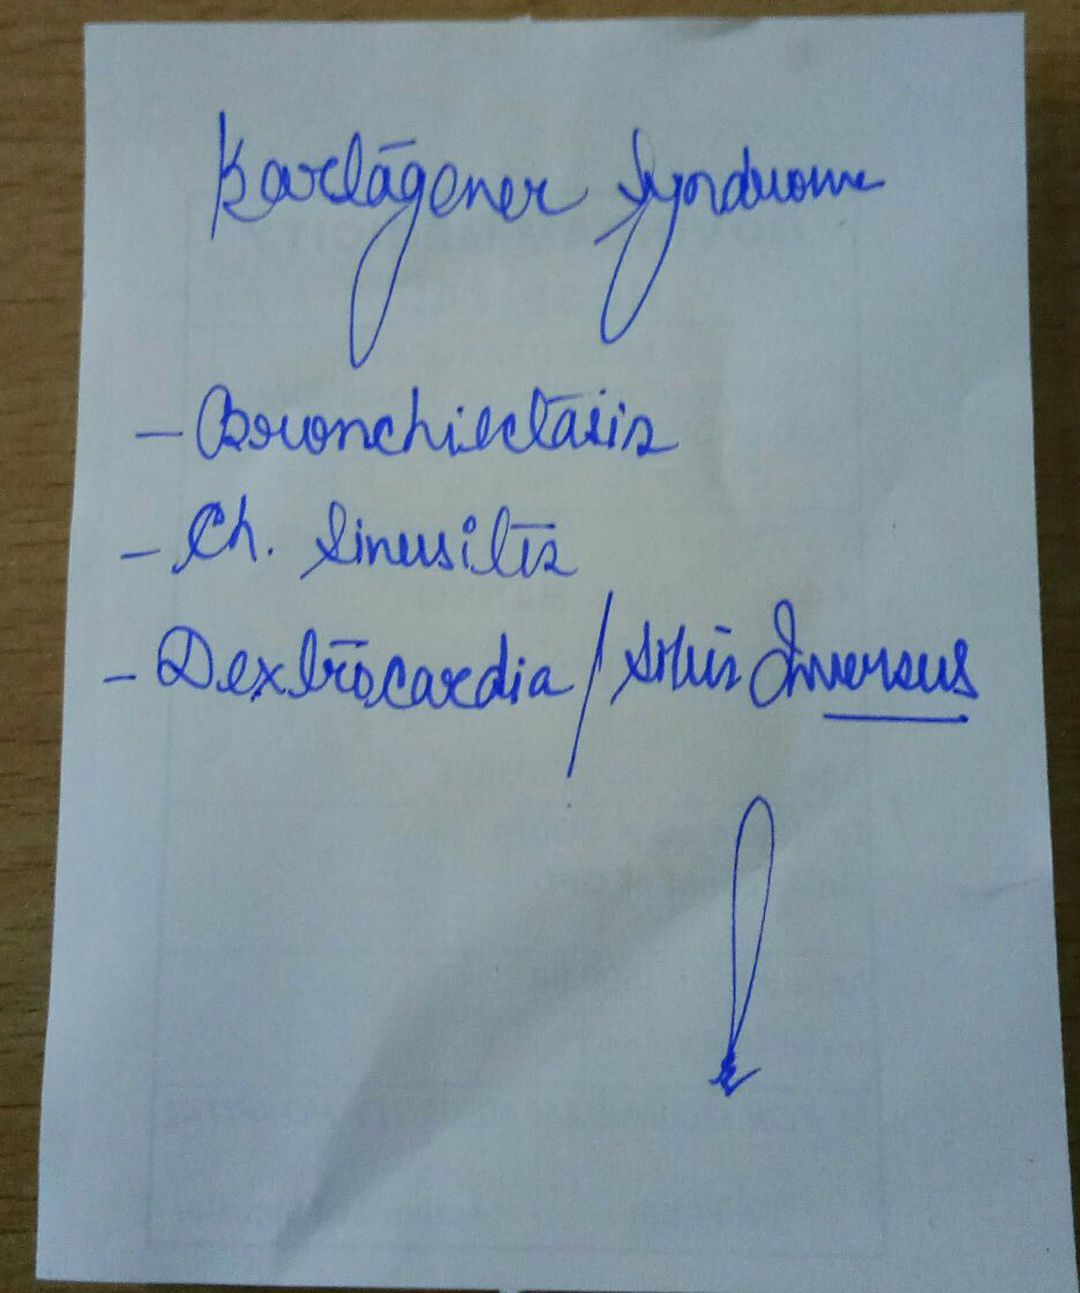 Kartagener Syndrome
- Bronchiectasis
- Ch. Sinusitis
- Dextrocardia / Situs Inversus